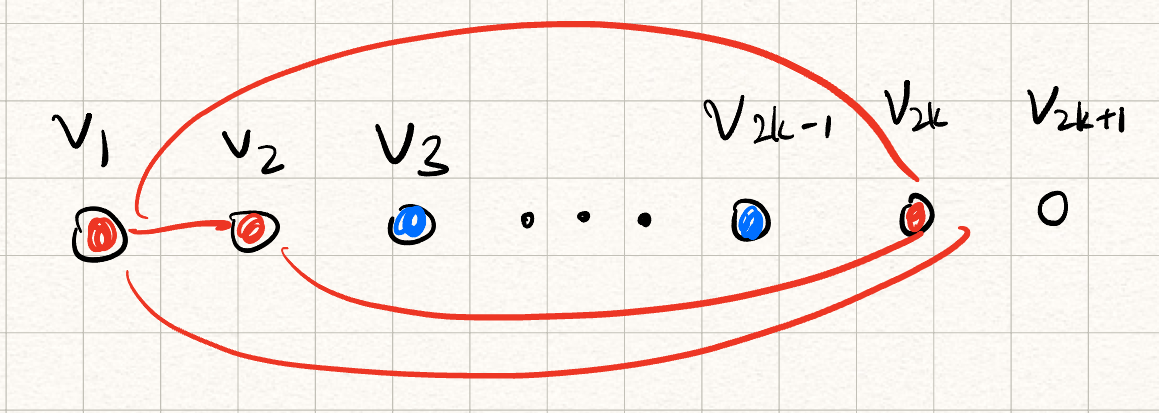 V₁ V₂ V₃ ... V₂ₖ₋₁ V₂ₖ V₂ₖ₊₁